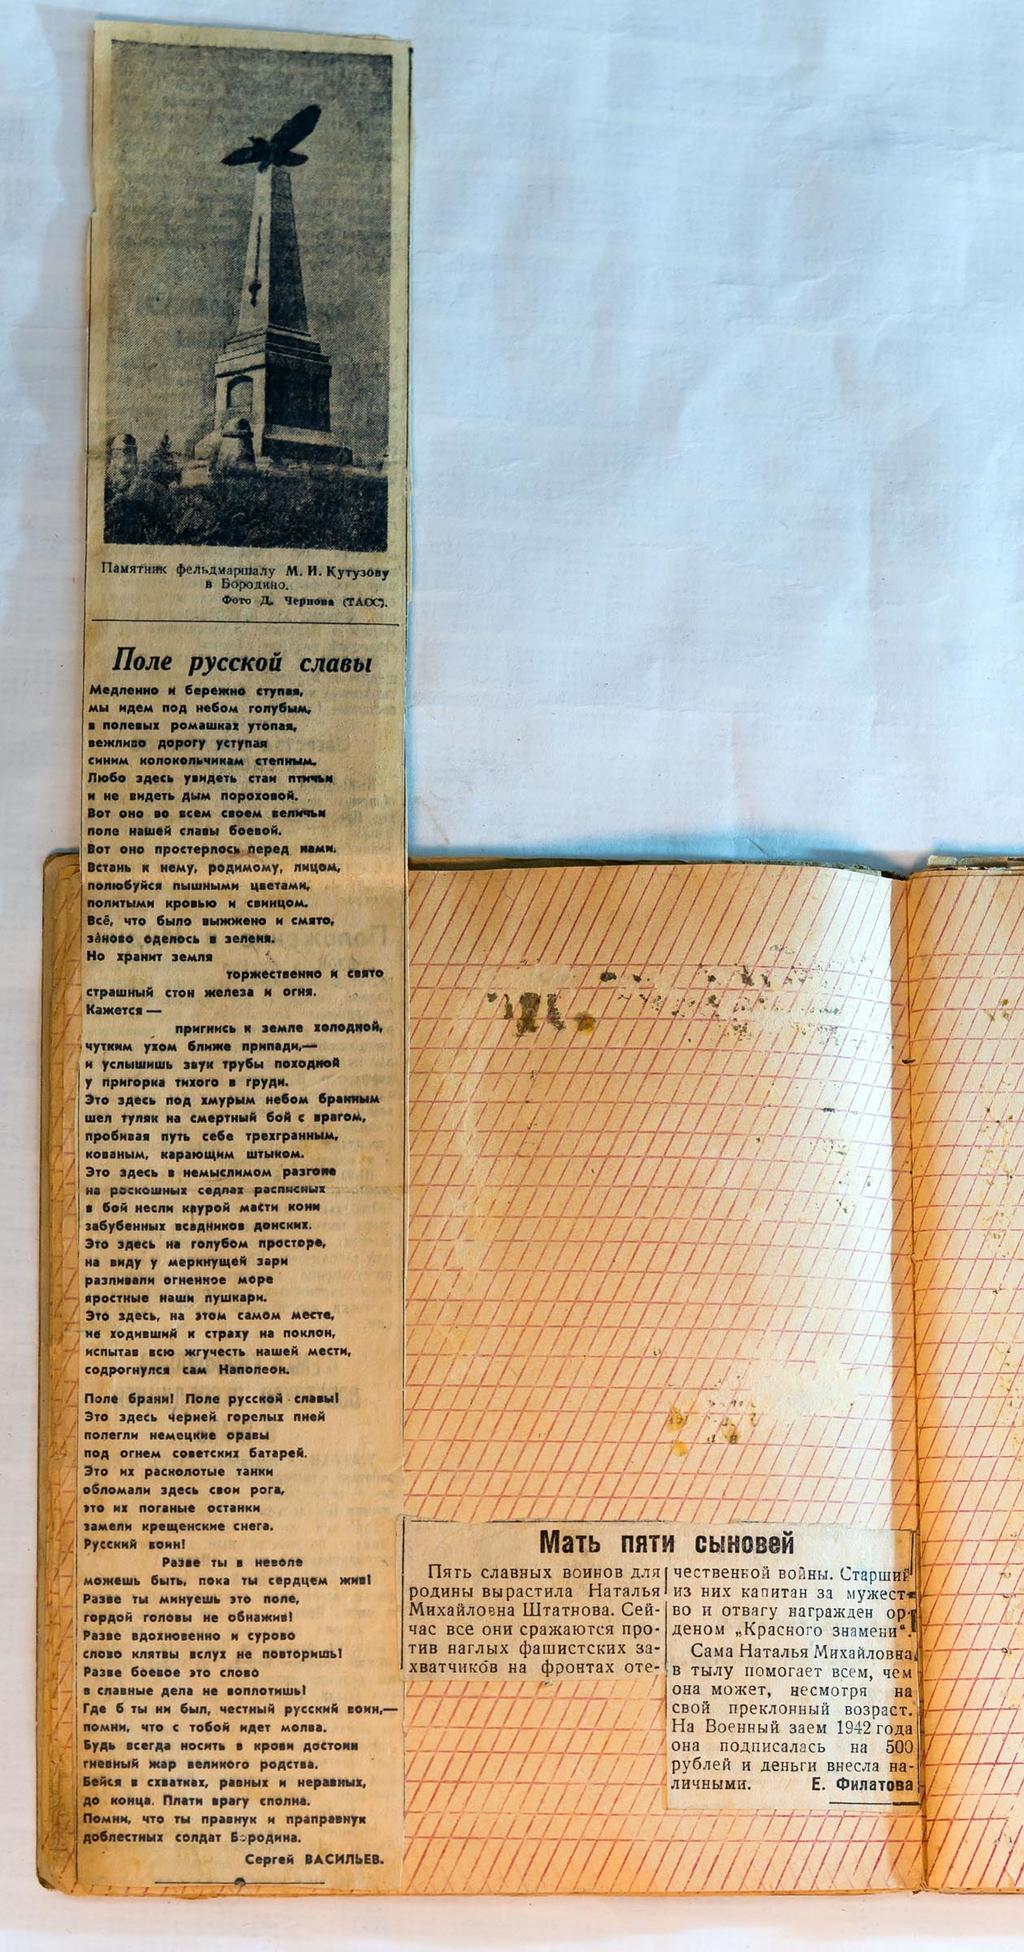 Памятник фельдмаршалу М. И. Кутузову
в Бородино.
Фото Д. Чернова (ТАСС).
Поле русской славы
Медленно и бережно ступая,
мы идем под небом голубым,
в полевых ромашках утопая,
вежливо дорогу уступая
синим колокольчикам степным.
Любо здесь увидеть стаи птичьи
и не видеть дым пороховой.
Вот оно во всем своем величьи
поле нашей славы боевой.
Вот оно простерлось перед нами.
Встань к нему, родимому, лицом,
полюбуйся пышными цветами,
политыми кровью и свинцом.
Всё, что было выжжено и смято,
заново оделось в зеленя.
Но хранит земля
торжественно и свято
страшный стон железа и огня.
Кажется —
пригнись к земле холодной,
чутким ухом ближе припади,—
и услышишь звук трубы походной
у пригорка тихого в груди.
Это здесь под хмурым небом бранным
шел туляк на смертный бой с врагом,
пробивая путь себе трехгранным,
кованым, карающим штыком.
Это здесь в немыслимом разгоне
на роскошных седлах расписных
в бой несли каурой масти кони
забубенных всадников донских.
Это здесь на голубом просторе,
на виду у меркнущей зари
разливали огненное море
яростные наши пушкари.
Это здесь, на этом самом месте,
не ходивший к страху на поклон,
испытав всю жгучесть нашей мести,
содрогнулся сам Наполеон.
Поле брани! Поле русской славы!
Это здесь черней горелых пней
полегли немецкие оравы
под огнем советских батарей.
Это их расколотые танки
обломали здесь свои рога,
это их поганые останки
замели крещенские снега.
Русский воин!
Разве ты в неволе
можешь быть, пока ты сердцем жив!
Разве ты минуешь это поле,
гордой головы не обнажив!
Разве вдохновенно и сурово
слово клятвы вслух не повторишь!
Разве боевое это слово
в славные дела не воплотишь!
Где б ты ни был, честный русский воин,—
помни, что с тобой идет молва.
Будь всегда носить в крови достоин
гневный жар великого родства.
Бейся в схватках, равных и неравных,
до конца. Плати врагу сполна.
Помни, что ты правнук и праправнук
доблестных солдат Бородина.
Сергей ВАСИЛЬЕВ.
Мать пяти сыновей
Пять славных воинов для
родины вырастила Наталья
Михайловна Штатнова. Сей-
час все они сражаются про-
тив наглых фашистских за-
хватчиков на фронтах оте-
чественной войны. Старший
из них капитан за мужест-
во и отвагу награжден ор-
деном „Красного знамени“.
Сама Наталья Михайловна
в тылу помогает всем, чем
она может, несмотря на
свой преклонный возраст.
На Военный заем 1942 года
она подписалась на 500
рублей и деньги внесла на-
личными. Е. Филатова